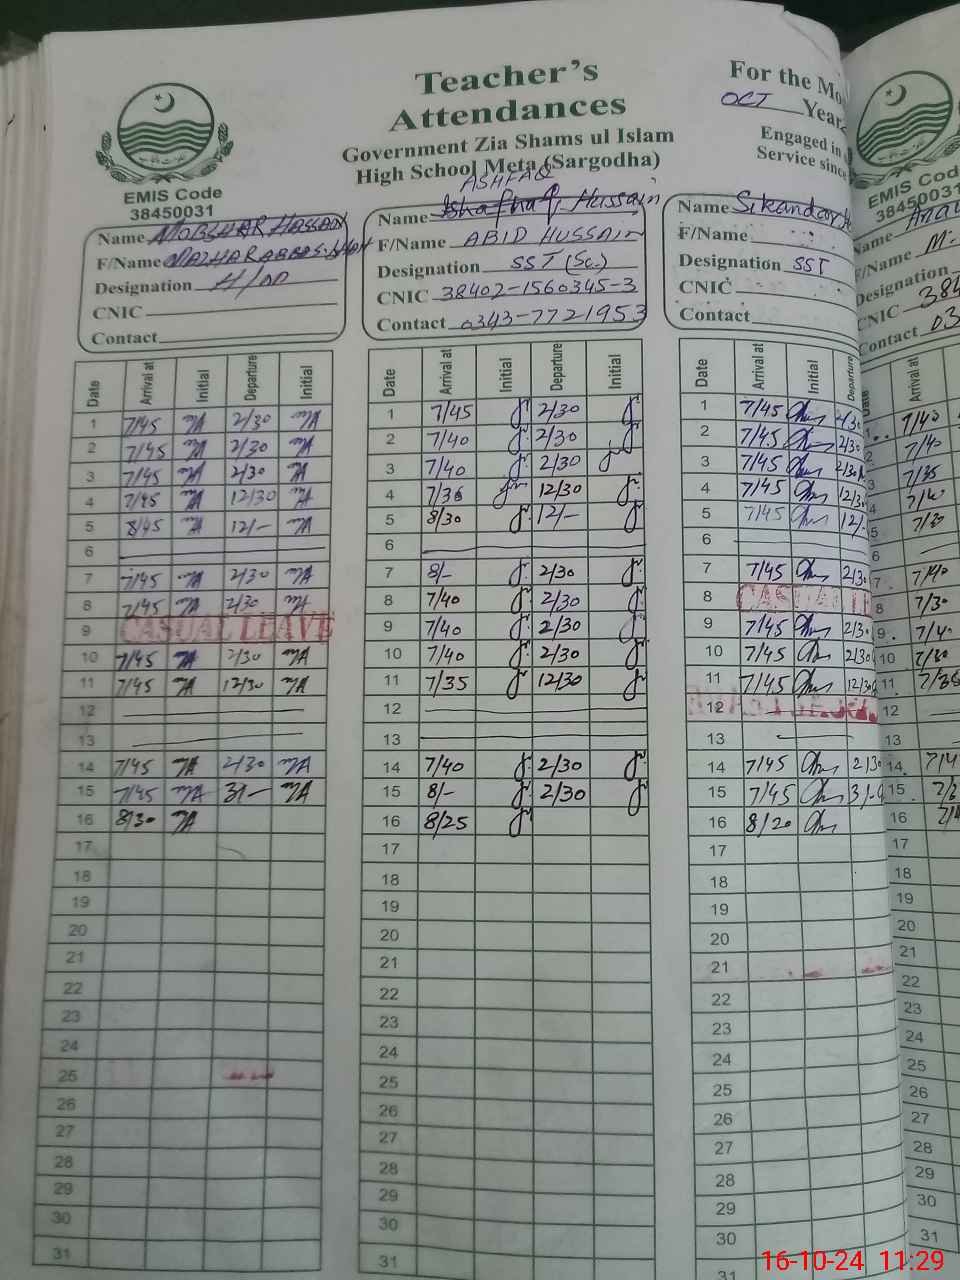 Teacher's
Attendances
Government Zia Shams ul Islam
High School Meta (Sargodha)
For the Mo
OCT Year
Engaged in
Service since
EMIS Code
38450031
EMIS Cod
38450031
Name MOBSHAR HASSAN
F/Name MAZHAR ABBAS
Designation
CNIC
Contact
ASHFAQ
Name Ishafhaq Hussain
F/Name ABID HUSSAIN
Designation SST (Sc.)
CNIC 38402-1560345-3
Contact 0343-7721953
Name Sikandar
F/Name
Designation SST
CNIC
Contact
Name
F/Name M.
Designation
CNIC 384
Contact 03
Date Arrival at Initial Departure Initial
1 7/45 MA 2/30 MA
2 7/45 MA 2/30 MA
3 7/45 MA 2/30 MA
4 7/45 MA 12/30 MA
5 8/45 MA 12/- MA
6
7 7/45 MA 2/30 MA
8 7/45 MA 2/30 MA
9 CASUAL LEAVE
10 7/45 MA 2/30 MA
11 7/45 MA 12/30 MA
12
13
14 7/45 MA 2/30 MA
15 7/45 MA 3/- MA
16 8/30 MA
17
18
19
20
21
22
23
24
25
26
27
28
29
30
31
Date Arrival at Initial Departure Initial
1 7/45 2/30
2 7/40 2/30
3 7/40 2/30
4 7/36 12/30
5 8/30 12/-
6
7 8/- 2/30
8 7/40 2/30
9 7/40 2/30
10 7/40 2/30
11 7/35 12/30
12
13
14 7/40 2/30
15 8/- 2/30
16 8/25
17
18
19
20
21
22
23
24
25
26
27
28
29
30
31
Date Arrival at Initial Departure
1 7/45 2/30
2 7/45 2/30
3 7/45 2/30
4 7/45 12/30
5 7/45 12/-
6
7 7/45 2/30
8 CASUAL LE
9 7/45 2/30
10 7/45 2/30
11 7/45 12/30
12
13
14 7/45 2/30
15 7/45 3/-
16 8/20
17
18
19
20
21
22
23
24
25
26
27
28
29
30
31
Date Arrival at
1 7/40
2 7/40
3 7/35
4 7/40
5 7/30
6
7 7/40
8 7/30
9 7/40
10 7/30
11 7/35
12
13
14 7/4
15
16
17
18
19
20
21
22
23
24
25
26
27
28
29
30
31
16-10-24 11:29